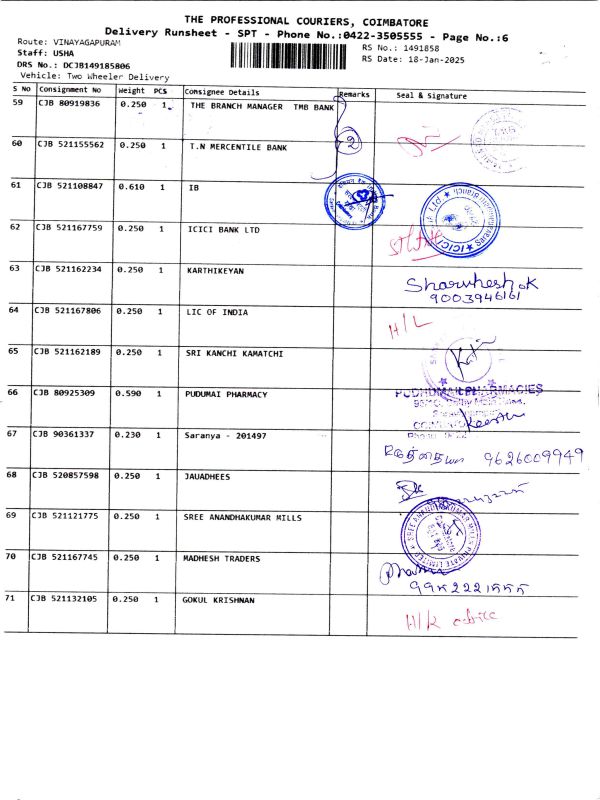 THE PROFESSIONAL COURIERS, COIMBATORE
Delivery Runsheet - SPT - Phone No.:0422-3505555 - Page No.:6
Route: VINAYAGAPURAM
RS No.: 1491858
Staff: USHA
RS Date: 18-Jan-2025
DRS No.: DCJB149185806
Vehicle: Two Wheeler Delivery
S No Consignment No Weight PCS Consignee Details Remarks Seal & Signature
59 CJB 80919836 0.250 1 THE BRANCH MANAGER TMB BANK
60 CJB 521155562 0.250 1 T.N MERCENTILE BANK 2
61 CJB 521108847 0.610 1 IB
62 CJB 521167759 0.250 1 ICICI BANK LTD
63 CJB 521162234 0.250 1 KARTHIKEYAN Sharuhesh.K
9003946161
64 CJB 521167806 0.250 1 LIC OF INDIA H/L
65 CJB 521162189 0.250 1 SRI KANCHI KAMATCHI
66 CJB 80925309 0.590 1 PUDUMAI PHARMACY PUDHUMAI PHARMACIES
67 CJB 90361337 0.230 1 Saranya - 201497 9626009949
68 CJB 520857598 0.250 1 JAUADHEES
69 CJB 521121775 0.250 1 SREE ANANDHAKUMAR MILLS SREE ANANDHAKUMAR MILLS PRIVATE LIMITED
70 CJB 521167745 0.250 1 MADHESH TRADERS
71 CJB 521132105 0.250 1 GOKUL KRISHNAN H/R